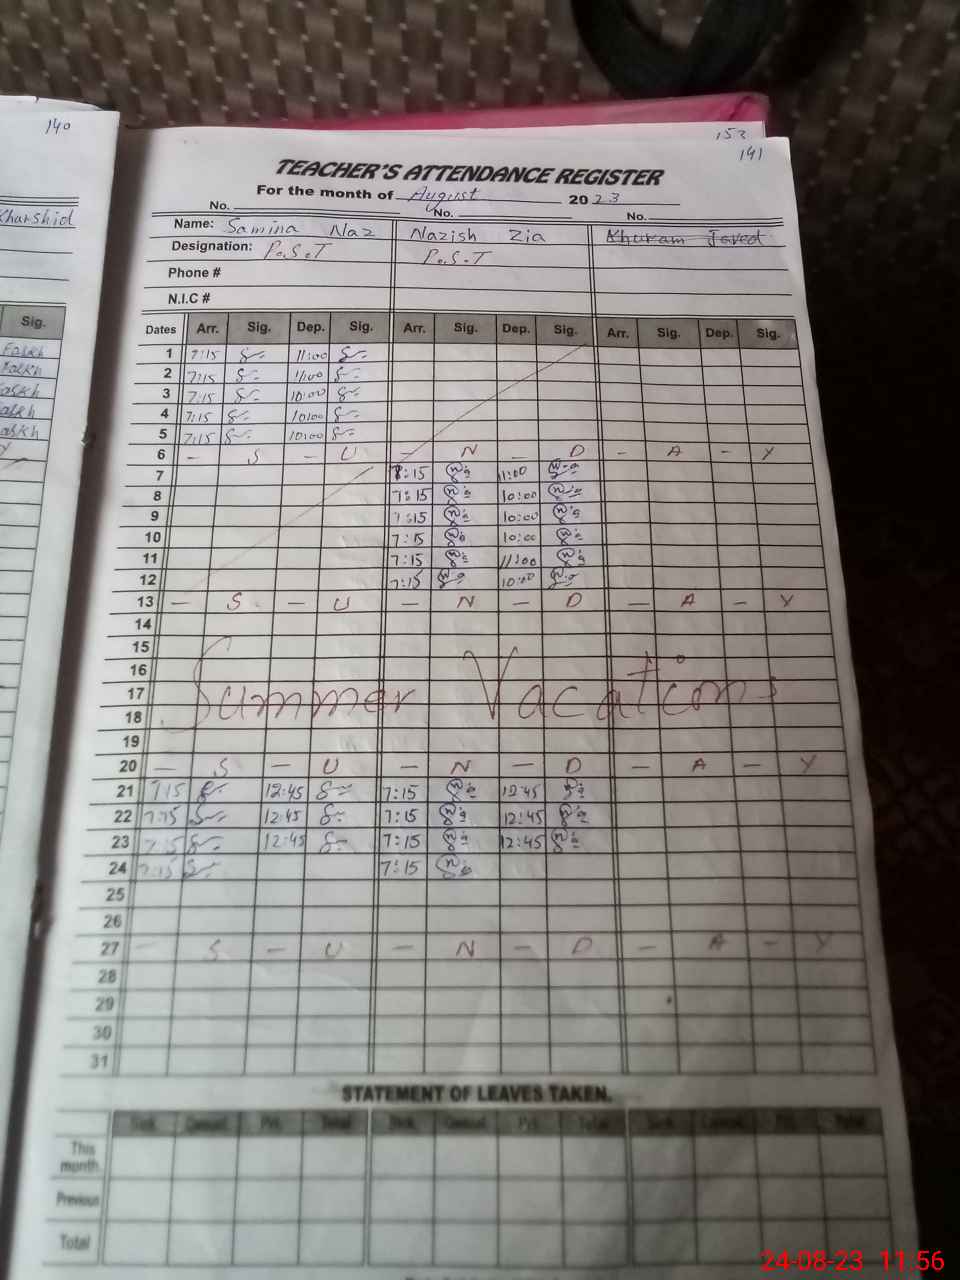 140
153
141
TEACHER'S ATTENDANCE REGISTER
For the month of August 2023
No. No. No.
Kharshid
Name: Samina Naz Nazish Zia Khuram Javed
Designation: P.S.T P.S.T
Phone #
N.I.C #
Sig.
Dates Arr. Sig. Dep. Sig. Arr. Sig. Dep. Sig. Arr. Sig. Dep. Sig.
1 7:15 11:00
2 7:15 11:00
3 7:15 10:00
4 7:15 10:00
5 7:15 10:00
6 - S - U - N - D - A - Y
7 7:15 11:00
8 7:15 10:00
9 7:15 10:00
10 7:15 10:00
11 7:15 11:00
12 7:15 10:00
13 - S - U - N - D - A - Y
14
15
16
17 Summer Vacations
18
19
20 - S - U - N - D - A - Y
21 7:15 12:45 7:15 12:45
22 7:15 12:45 7:15 12:45
23 7:15 12:45 7:15 12:45
24 7:15 7:15
25
26
27 - S - U - N - D - A - Y
28
29
30
31
STATEMENT OF LEAVES TAKEN.
Sick Casual Pvt. Total Sick Casual Pvt. Total Sick Casual Pvt. Total
This
month.
Previous
Total
24-08-23 11:56